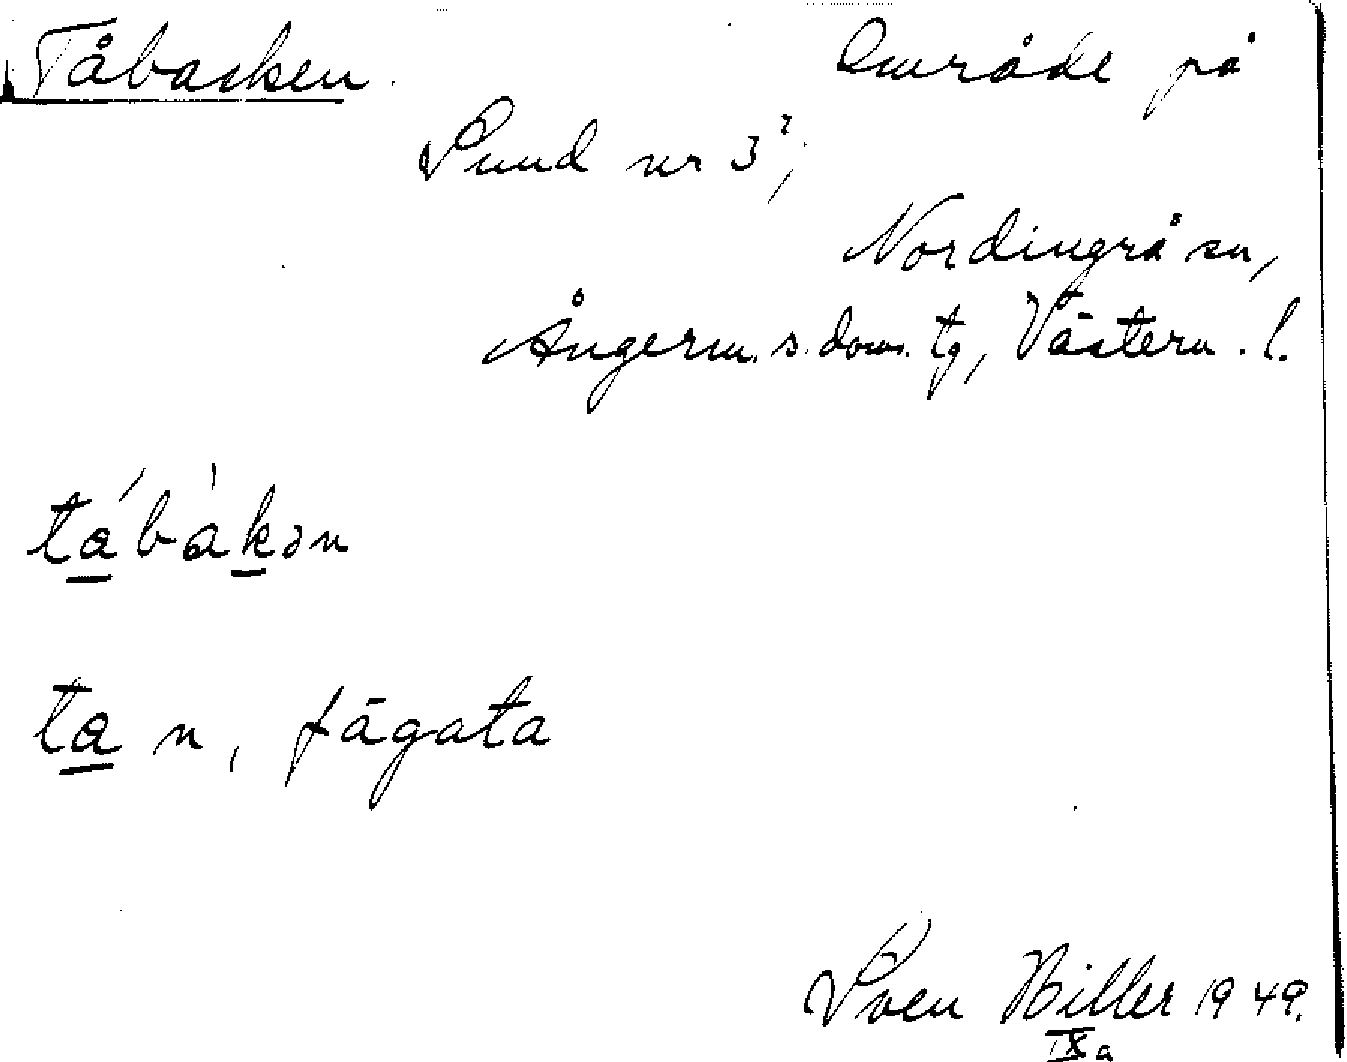 Tåbacken. Område på
Sund nr 3²,
Nordingrå sn,
Ångerm. s. doms. tg, Västern. l.
tábàkən
ta n, fägata
Sven Hiller 1949.
IXa